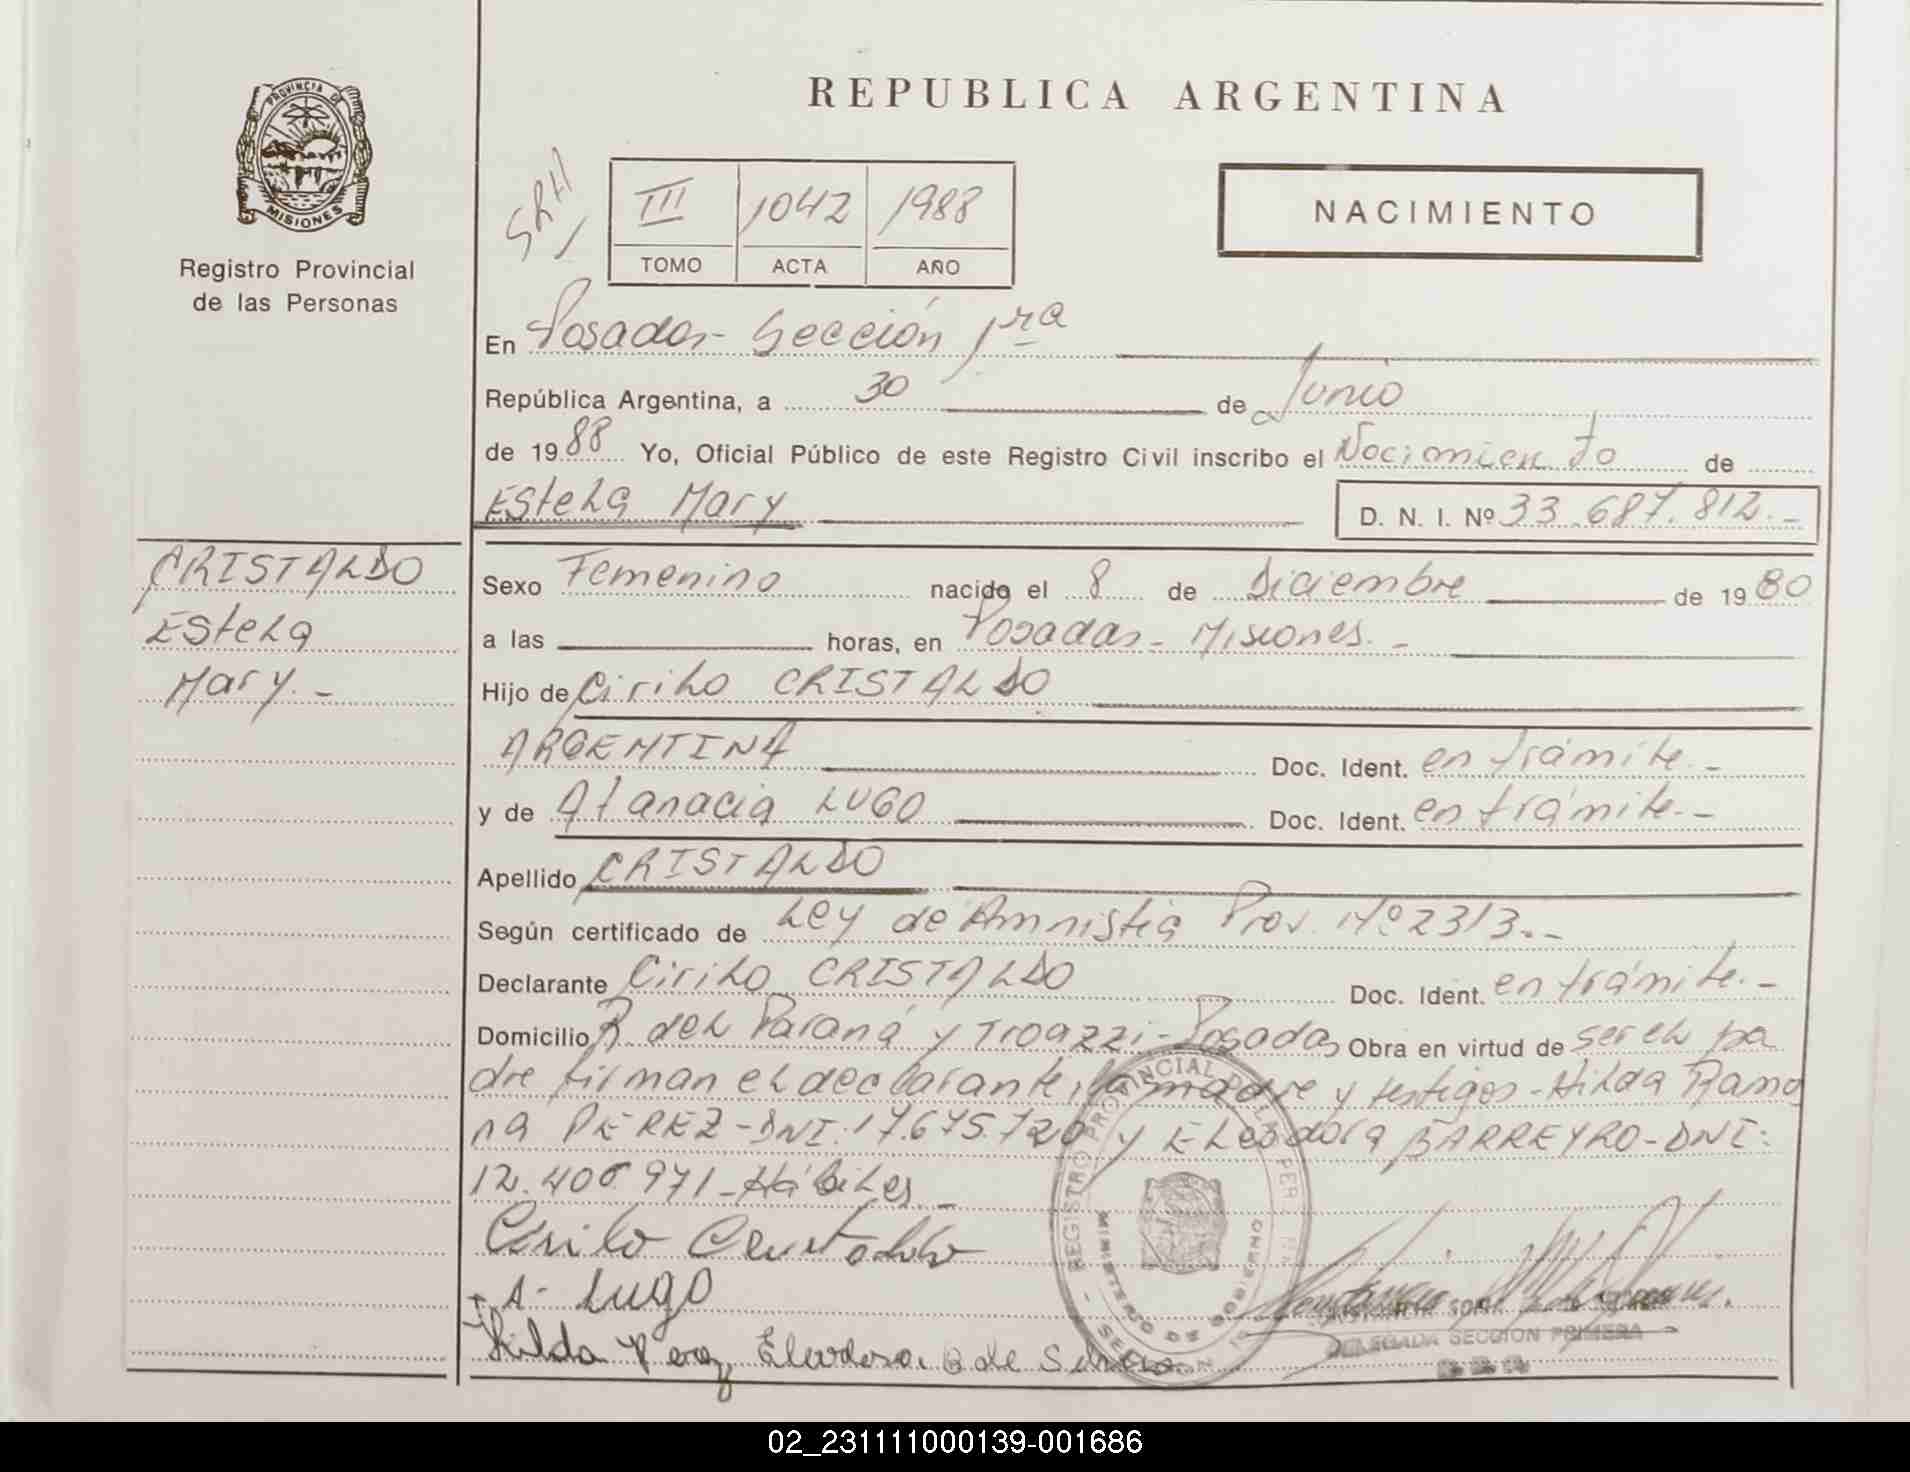 PROVINCIA DE
MISIONES
Registro Provincial
de las Personas
REPUBLICA ARGENTINA
SRH
III 1042 1988
TOMO ACTA AÑO
NACIMIENTO
En Posadas - Sección 1ra
República Argentina, a 30 de Junio
de 1988 Yo, Oficial Público de este Registro Civil inscribo el Nacimiento de
Estela Mary D. N. I. Nº 33.687.812.-
CRISTALDO
Estela
Mary.-
Sexo Femenino nacido el 8 de Diciembre de 1980
a las horas, en Posadas - Misiones.-
Hijo de Cirilo CRISTALDO
ARGENTINA Doc. Ident. en trámite.-
y de Atanacia LUGO Doc. Ident. en trámite.-
Apellido CRISTALDO
Según certificado de Ley de Amnistia Prov. Nº 2313.-
Declarante Cirilo CRISTALDO Doc. Ident. en trámite.-
Domicilio R del Paraná y - Posadas Obra en virtud de ser el pa
dre firman el declarante, la madre y testigos - Hilda Ramo
na PEREZ - DNI: 17.675.720 y Eleodora BARREYRO - DNI:
12.406971 - Hábiles.-
Cirilo Cristaldo
A. Lugo
Hilda Perez Eleodora B de
REGISTRO PROVINCIAL DE LAS PER
MINISTERIO DE GOBIERNO
SECCION 1
DELEGADA SECCION PRIMERA
02_231111000139-001686